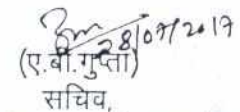 28/07/2017
(ए.बी.गुप्ता)
सचिव,